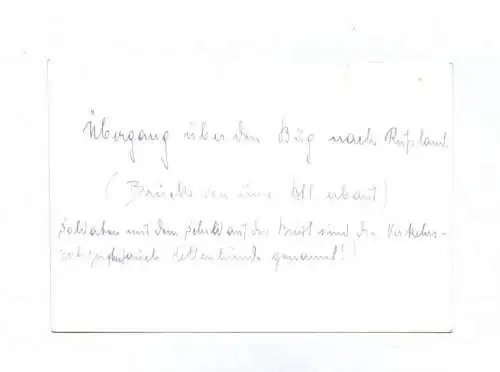 Übergang über den Bug nach Rußland.
(Brücke von uns erbaut)
Soldaten mit dem Schild auf der Brust sind die Verkehrs-
polizisten auch Kettenhunde genannt!!